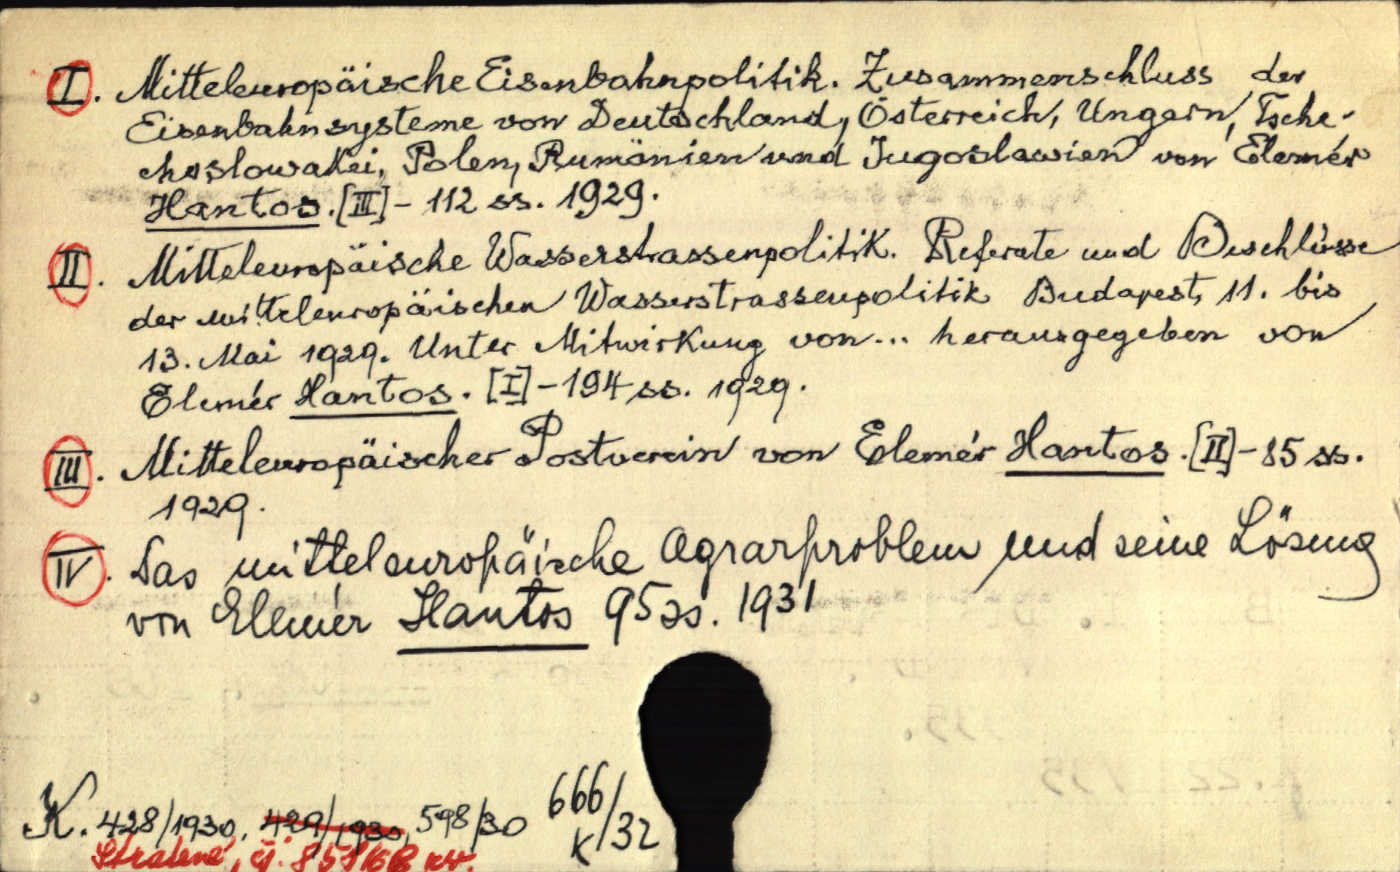 I. Mitteleuropäische Eisenbahnpolitik. Zusammenschluss der
Eisenbahnsysteme von Deutschland, Österreich, Ungarn, Tsche-
choslowakei, Polen, Rumänien und Jugoslawien von Elemér
Hantos. [III] - 112 ss. 1929.
II. Mitteleuropäische Wasserstrassenpolitik. Referate und Beschlüsse
der mitteleuropäischen Wasserstrassenpolitik Budapest, 11. bis
13. Mai 1929. Unter Mitwirkung von... herausgegeben von
Elemér Hantos. [I] - 194 ss. 1929.
III. Mitteleuropäischer Postverein von Elemér Hantos. [II] - 85 ss.
1929.
IV. Das mitteleuropäische Agrarproblem und seine Lösung
von Elemér Hantos 95 ss. 1931
K. 428/1930, 429/1930, 598/30 666/32
K
Stratené, čj.